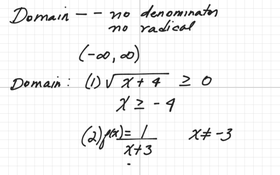 Domain -- no denominator
no radical
(-∞, ∞)
Domain: (1) √x + 4 ≥ 0
x ≥ -4
(2) f(x) = 1/x+3 x ≠ -3